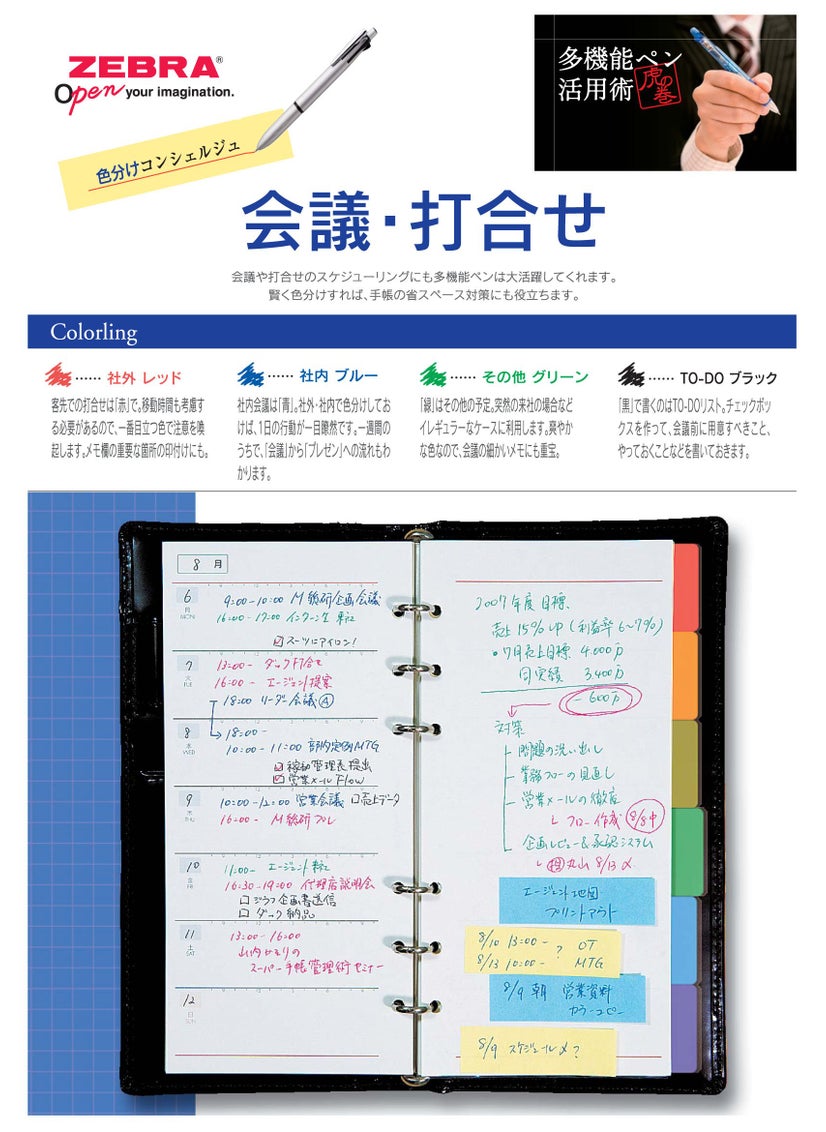 ZEBRA®
Open your imagination.
色分けコンシェルジュ
多機能ペン
活用術
虎の巻
会議・打合せ
会議や打合せのスケジューリングにも多機能ペンは大活躍してくれます。
賢く色分けすれば、手帳の省スペース対策にも役立ちます。
Colorling
…… 社外 レッド
客先での打合せは「赤」で。移動時間も考慮す
る必要があるので、一番目立つ色で注意を喚
起します。メモ欄の重要な箇所の印付けにも。
…… 社内 ブルー
社内会議は「青」。社外・社内で色分けしてお
けば、1日の行動が一目瞭然です。一週間の
うちで、「会議」から「プレゼン」への流れもわ
かります。
…… その他 グリーン
「緑」はその他の予定。突然の来社の場合など
イレギュラーなケースに利用します。爽やか
な色なので、会議の細かいメモにも重宝。
…… TO-DO ブラック
「黒」で書くのはTO-DOリスト。チェックボッ
クスを作って、会議前に用意すべきこと、
やっておくことなどを書いておきます。
8 月
6 月 MON
9:00-10:00 M総研企画会議
16:00-17:00 インターン生 来社
☑スーツにアイロン!
7 火 TUE
13:00- ダック打合せ
16:00- エージェント提案
18:00 リーダー会議 ④
8 水 WED
18:00-
10:00-11:00 部内定例MTG
☑稼動管理表提出
☑営業メール Flow
9 木 THU
10:00-12:00 営業会議 □売上データ
16:00- M総研プレ
10 金 FRI
11:00- エージェント来社
16:30-19:00 代理店説明会
□ジラフ企画書送信
□ダック納品
11 土 SAT
13:00-16:00
スーパー手帳管理術セミナー
12 日 SUN
2007年度目標
売上15%UP(利益率6~7%)
・7月売上目標 4.000万
同実績 3400万
-600万
対策
問題の洗い出し
業務フローの見直し
営業メールの徹底
フロー作成 8/8中
企画レビュー&承認システム
丸山 8/13 〆
エージェント地図
プリントアウト
8/10 13:00- ? OT
8/13 10:00- MTG
8/9 朝 営業資料
カラーコピー
8/9 スケジュール〆?